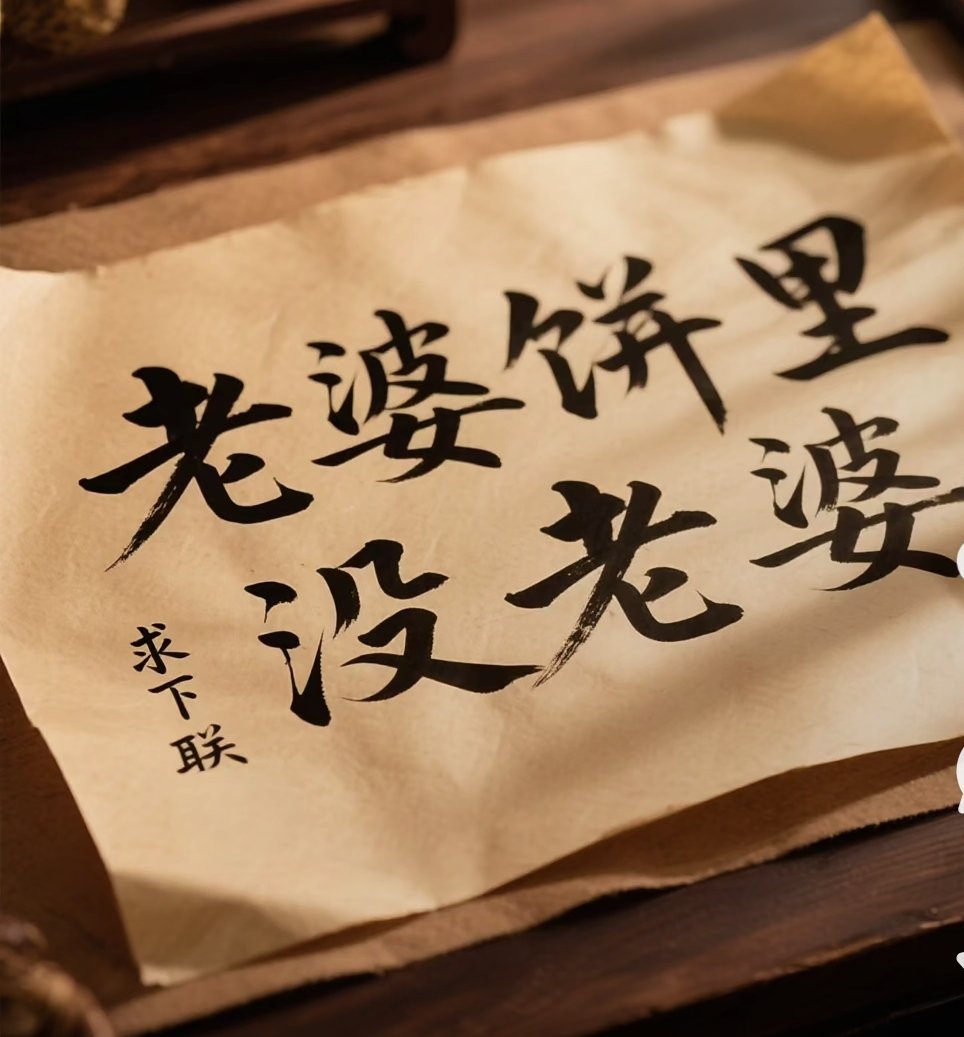 老婆饼里
没老婆
求下联